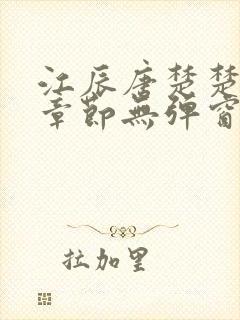 江辰唐楚楚
章節無彈窗
拉加里